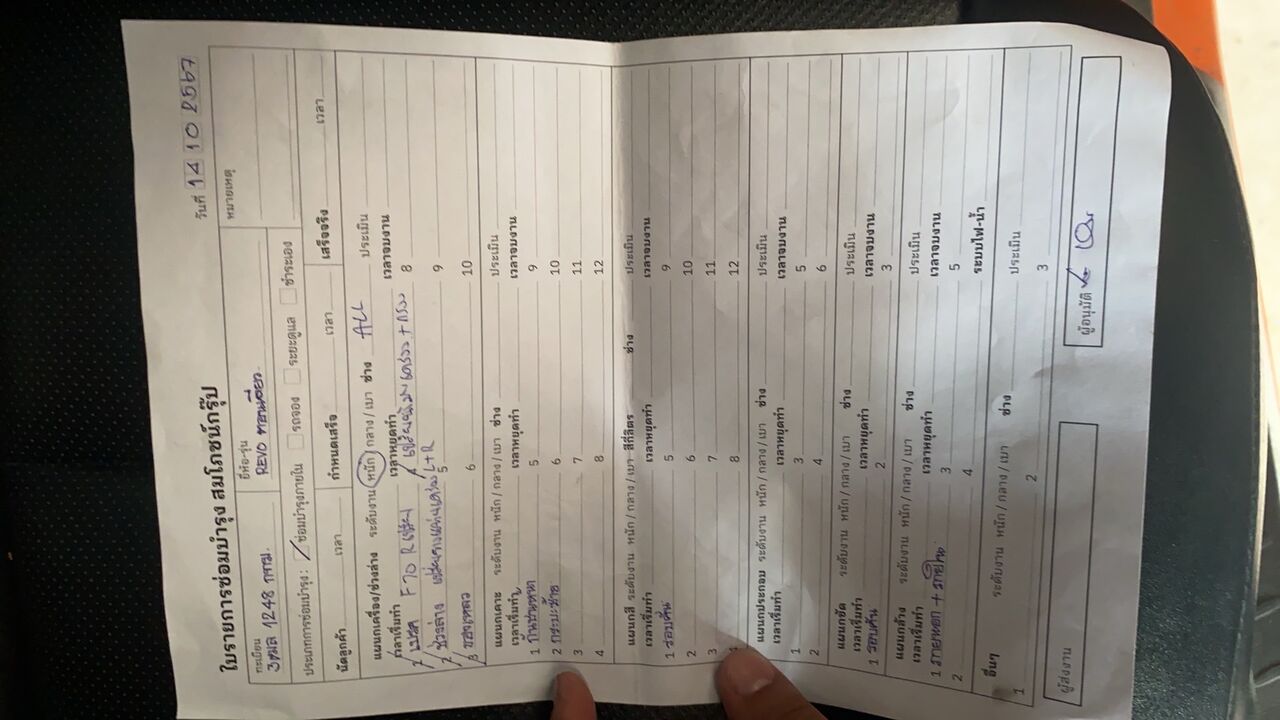 ใบรายการซ่อมบำรุง สมโภชน์กรุ๊ป
วันที่ 14 10 2567
ทะเบียน ยี่ห้อ-รุ่น หมายเหตุ
3ฒผ 1248 กทม. REVO ตอนเดียว
ประเภทการซ่อมบำรุง: / ซ่อมบำรุงภายใน รถจอง ระยะดูแล ชำระเอง
นัดลูกค้า เวลา กำหนดเสร็จ เวลา เสร็จจริง เวลา
แผนกเครื่อง/ช่วงล่าง ระดับงาน หนัก / กลาง / เบา ช่าง ALL ประเมิน
เวลาเริ่มทำ เวลาหยุดทำ เวลาจบงาน
1 เบรค F70 R เปลี่ยน 4 เปลี่ยน + กรอง 8
2 ช่วงล่าง L+R 5 9
3 ของเหลว 6 10
แผนกเคาะ ระดับงาน หนัก / กลาง / เบา ช่าง ประเมิน
เวลาเริ่มทำ เวลาหยุดทำ เวลาจบงาน
1 กันชนหน้า 5 9
2 กระบะซ้าย 6 10
3 7 11
4 8 12
แผนกสี ระดับงาน หนัก / กลาง / เบา สีกี่ลิตร ช่าง ประเมิน
เวลาเริ่มทำ เวลาหยุดทำ เวลาจบงาน
1 รอบคัน 5 9
2 6 10
3 7 11
8 12
แผนกประกอบ ระดับงาน หนัก / กลาง / เบา ช่าง ประเมิน
เวลาเริ่มทำ เวลาหยุดทำ เวลาจบงาน
1 3 5
2 4 6
แผนกขัด ระดับงาน หนัก / กลาง / เบา ช่าง ประเมิน
เวลาเริ่มทำ เวลาหยุดทำ เวลาจบงาน
1 รอบคัน 2 3
แผนกล้าง ระดับงาน หนัก / กลาง / เบา ช่าง ประเมิน
เวลาเริ่มทำ เวลาหยุดทำ เวลาจบงาน
1 3 5
2 4 ระบบไฟ-น้ำ
อื่นๆ ระดับงาน หนัก / กลาง / เบา ช่าง ประเมิน
1 2 3
ผู้ส่งงาน ผู้อนุมัติ